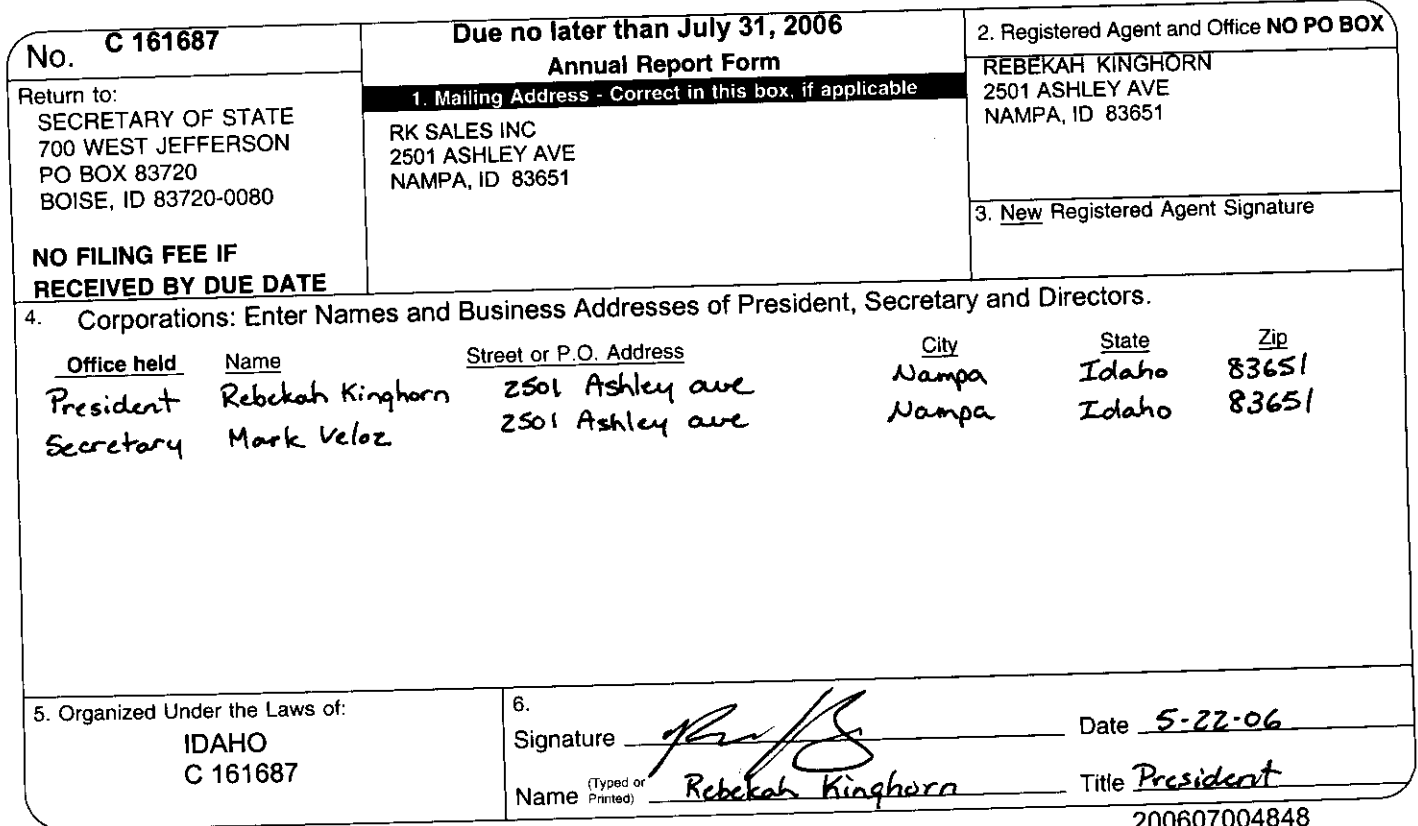 No. C 161687
Return to:
SECRETARY OF STATE
700 WEST JEFFERSON
PO BOX 83720
BOISE, ID 83720-0080
NO FILING FEE IF
RECEIVED BY DUE DATE
Due no later than July 31, 2006
Annual Report Form
1. Mailing Address - Correct in this box, if applicable
RK SALES INC
2501 ASHLEY AVE
NAMPA, ID 83651
2. Registered Agent and Office NO PO BOX
REBEKAH KINGHORN
2501 ASHLEY AVE
NAMPA, ID 83651
3. New Registered Agent Signature
4. Corporations: Enter Names and Business Addresses of President, Secretary and Directors.
Office held Name Street or P.O. Address City State Zip
President Rebekah Kinghorn 2501 Ashley ave Nampa Idaho 83651
Secretary Mark Veloz 2501 Ashley ave Nampa Idaho 83651
5. Organized Under the Laws of:
IDAHO
C 161687
6.
Signature Date 5-22-06
Name (Typed or Printed) Rebekah Kinghorn Title President
200607004848